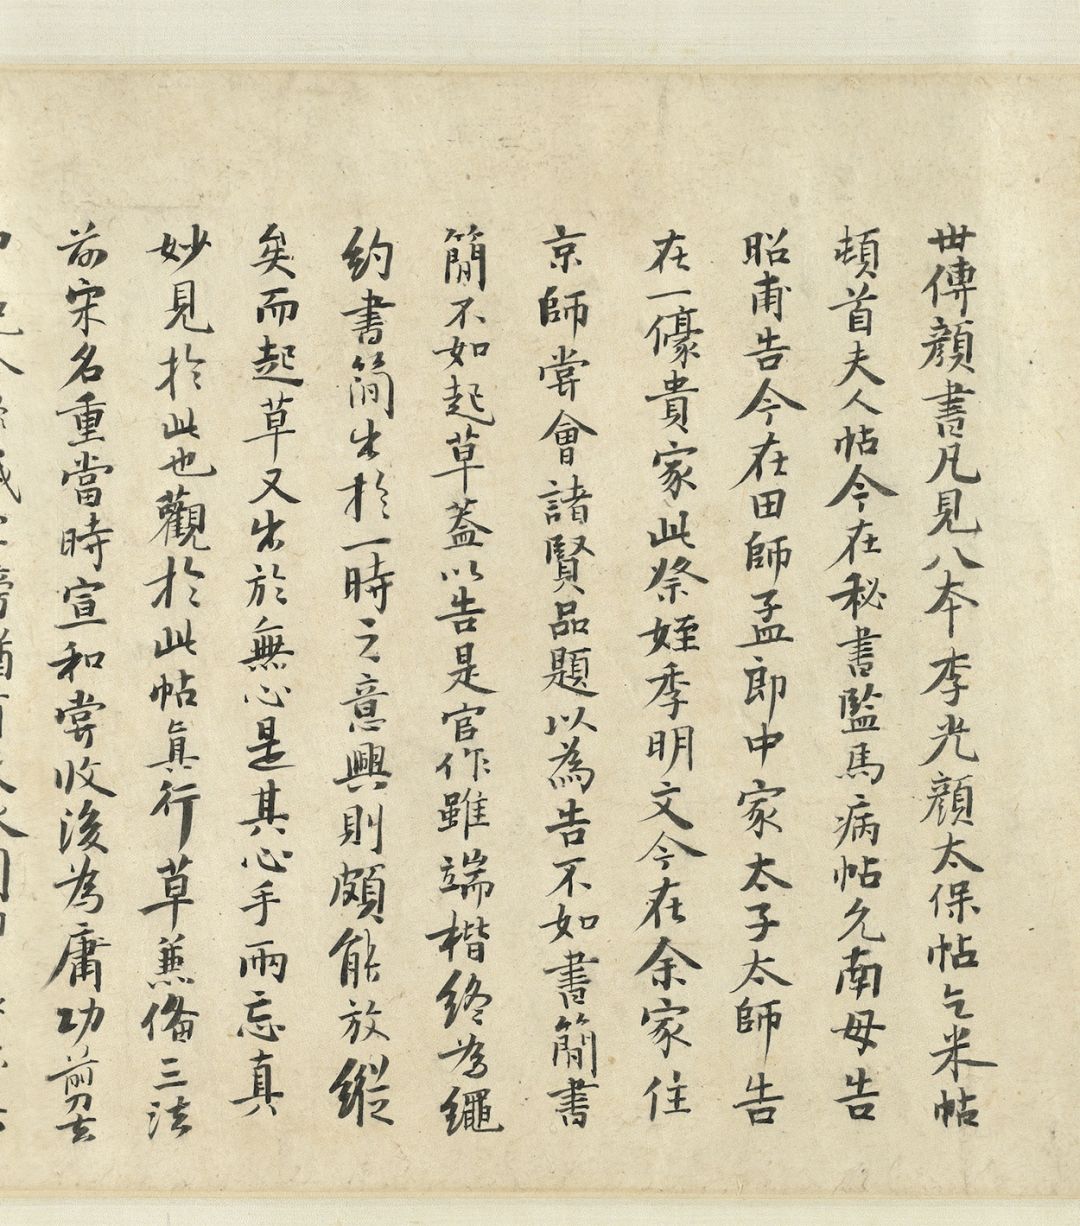 世傳顔書凡見八本李光顔太保帖乞米帖
頓首夫人帖今在秘書監馬病帖允南母告
昭甫告今在田師孟郎中家太子太師告
在一儫貴家此祭姪季明文今在余家住
京師甞會諸賢品題以為告不如書簡書
簡不如起草蓋以告是官作雖端楷終為繩
約書簡出於一時之意興則頗能放縱
矣而起草又出於無心是其心手兩忘真
妙見於此也觀於此帖真行草蕪備三法
前宋名重當時宣和甞收後為庸功剪去